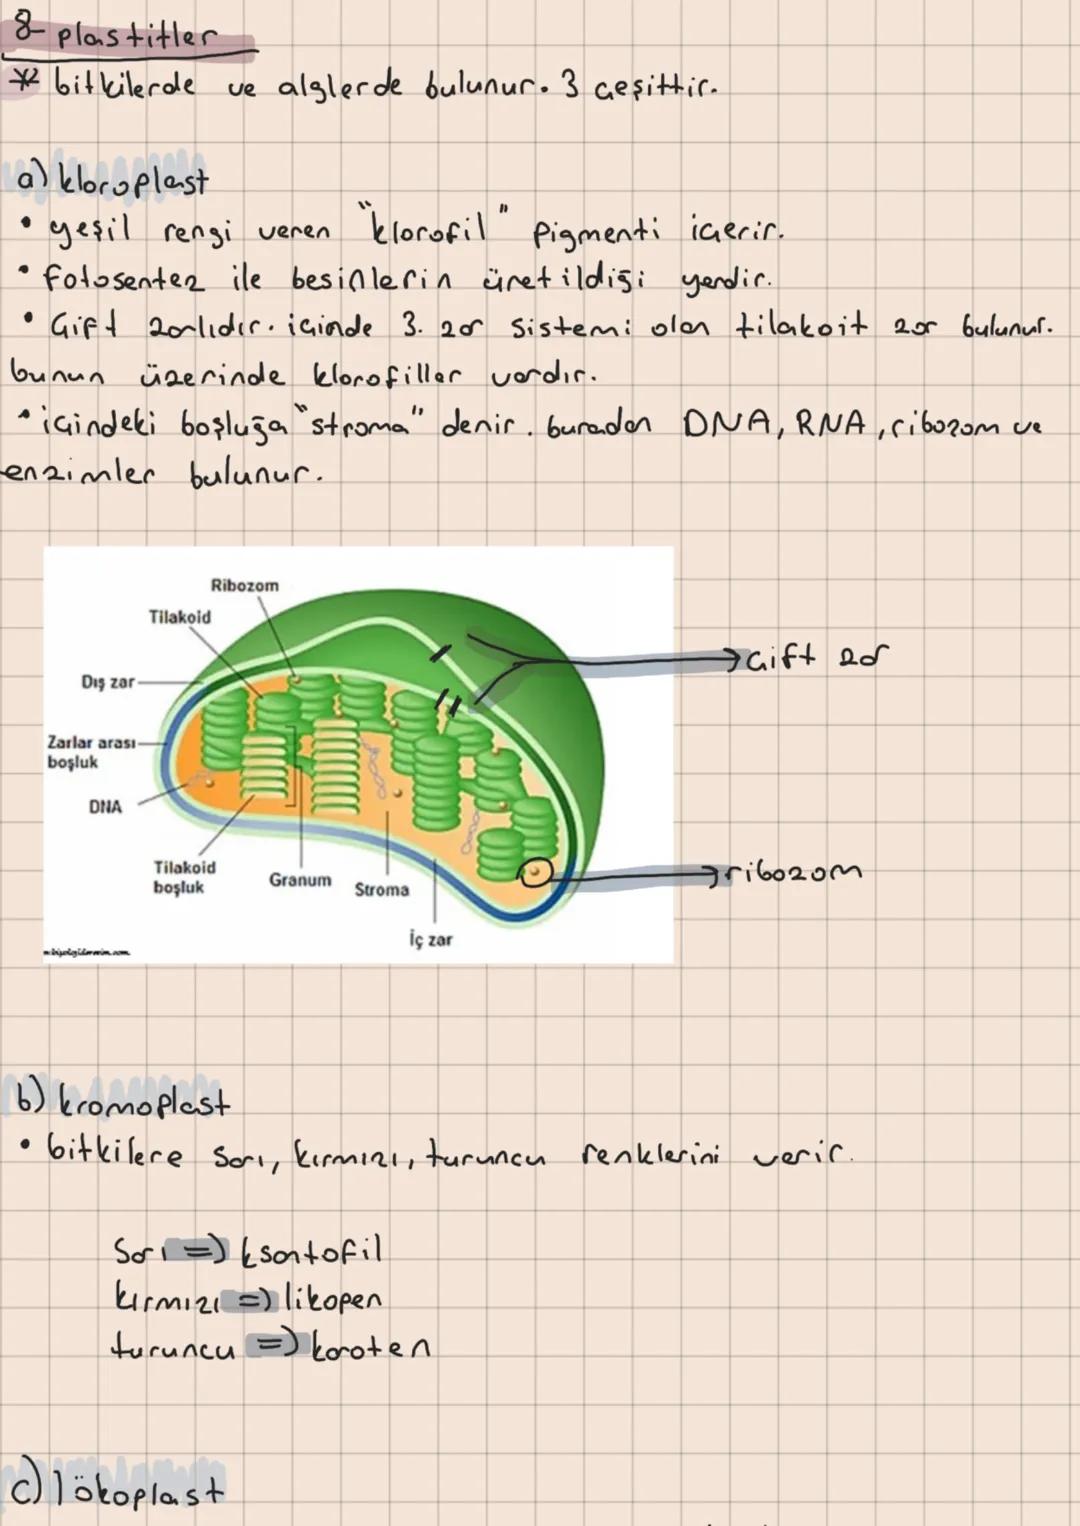 8- plastitler
* bitkilerde ve alglerde bulunur. 3 çeşittir.
a) kloroplast
• yeşil rengi veren "klorofil" pigmenti içerir.
• fotosentez ile besinlerin üretildiği yerdir.
• Çift zarlıdır. içinde 3. zar sistemi olan tilakoit zar bulunur.
bunun üzerinde klorofiller vardır.
• içindeki boşluğa "stroma" denir. buradan DNA, RNA, ribozom ve
enzimler bulunur.
Ribozom
Tilakoid
Dış zar
Zarlar arası
boşluk
DNA
Tilakoid
boşluk
Granum
Stroma
İç zar
çift zar
ribozom
b) kromoplast
• bitkilere sarı, kırmızı, turuncu renklerini verir.
Sarı => ksantofil
kırmızı => likopen
turuncu => karoten
c) lökoplast